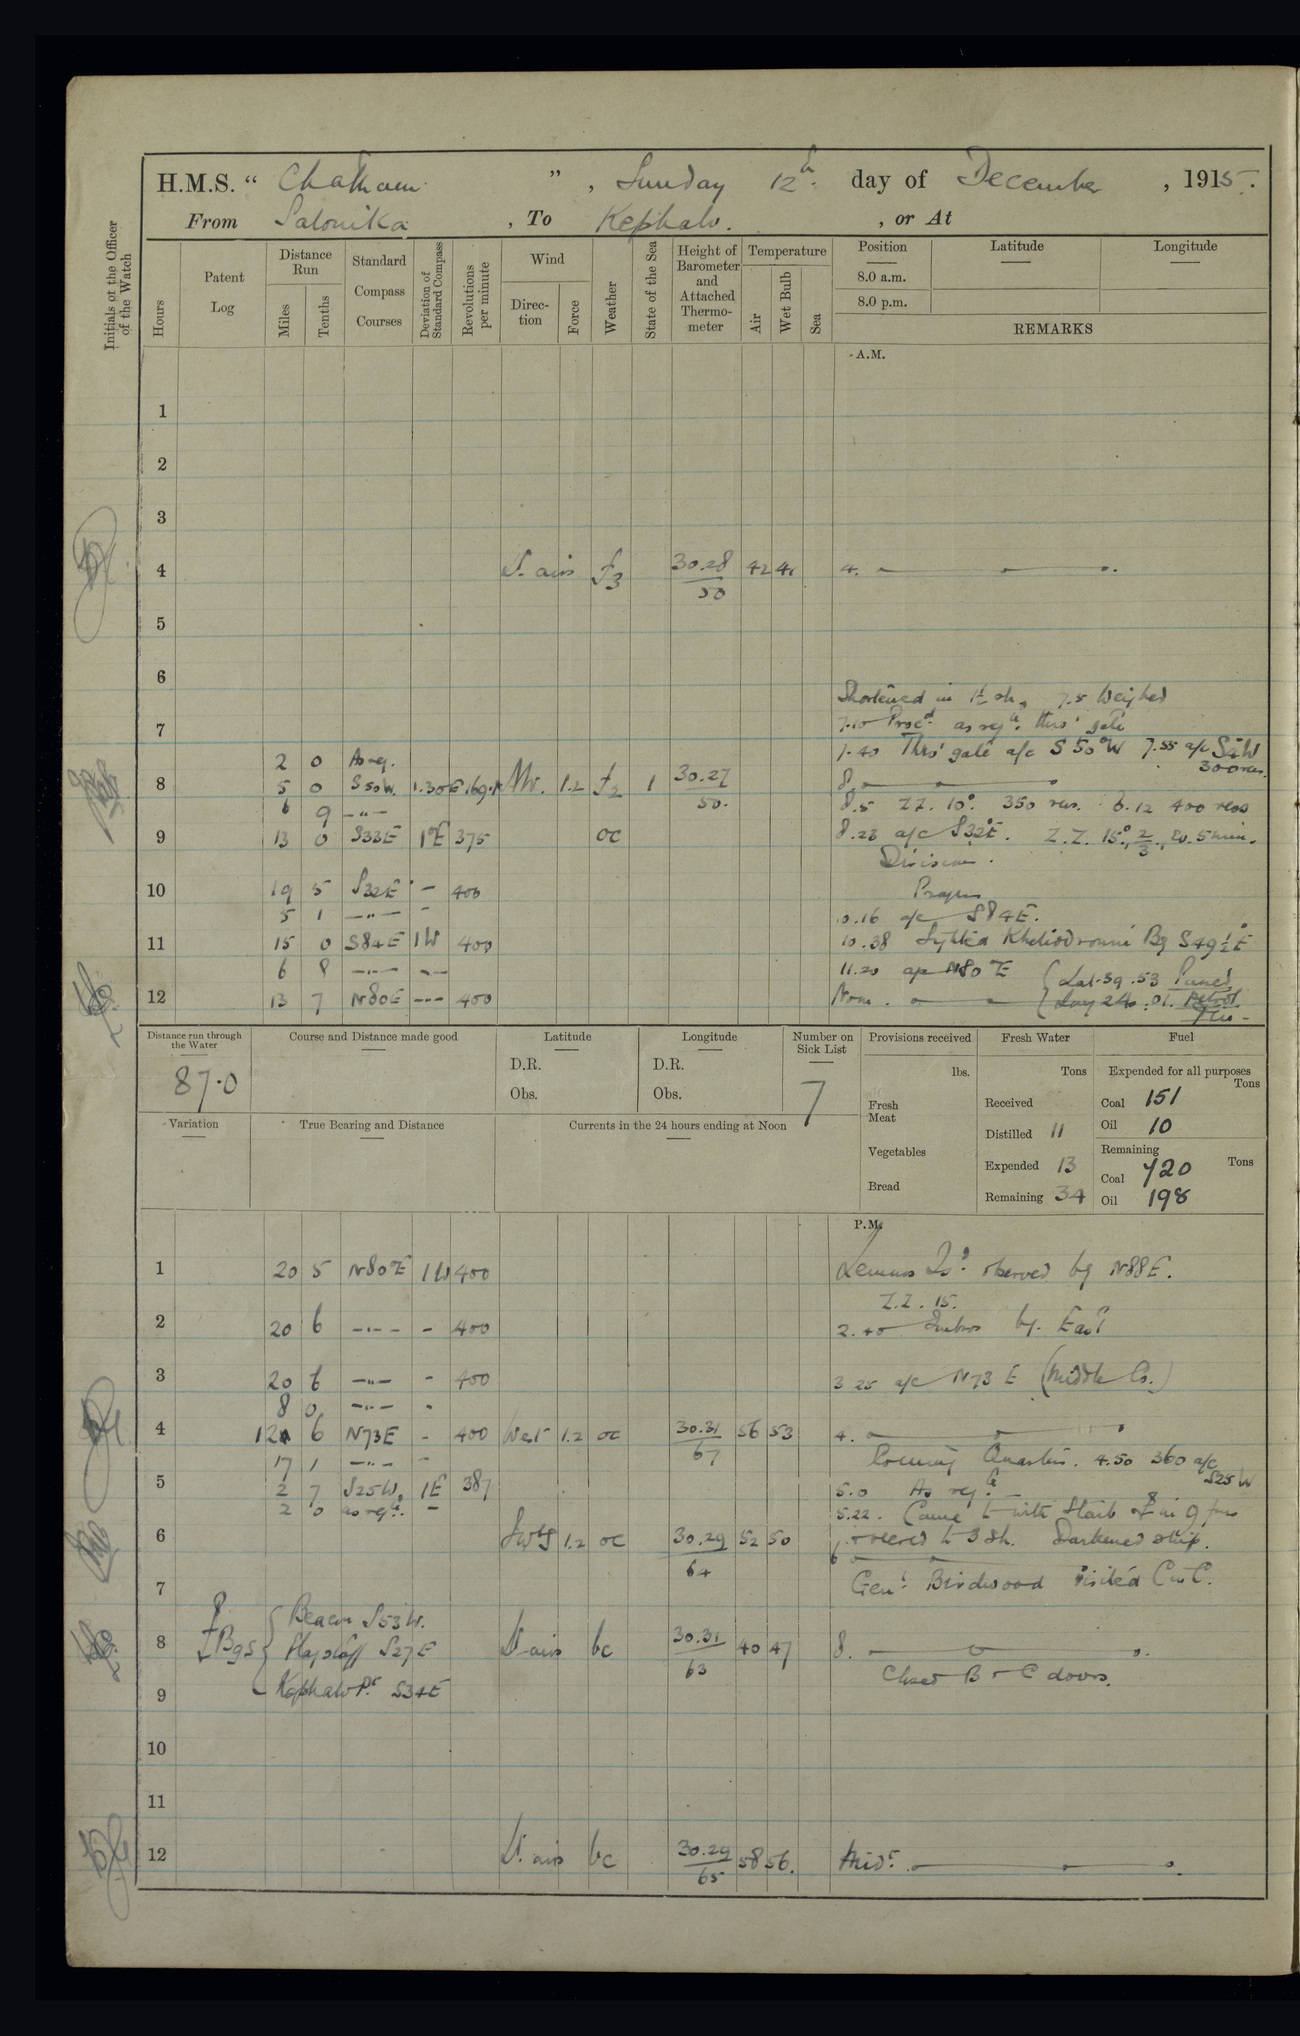 H.M.S. “ Chatham ” , Sunday 12th day of December , 1915.
From Salonika , To Kephalo. , or At
Initials of the Officer of the Watch
Hours
Patent Log
Distance Run
Miles
Tenths
Standard Compass Courses
Deviation of Standard Compass
Revolutions per minute
Wind
Direction
Force
Weather
State of the Sea
Height of Barometer and Attached Thermometer
Temperature
Air
Wet Bulb
Sea
Position
Latitude
Longitude
8.0 a.m.
8.0 p.m.
REMARKS
A.M.
1
2
3
4 Lt. airs f3 30.28/50 42 41 4.
5
6
Shortened in 7.5 Weighed
7 7.10 Proc'd as req'te thro' gate
2 0 As req. 7.40 Thro' gate a/c S 50°W 7.55 a/c
8 5 0 S50W. 1.30E 169.1 NW. 1.2 f2 1 30.27/50. 8.
6 9 -"- 8.5 ZZ. 10°. 350 revs. 8.12 400 revs
9 13 0 S33E 1°E 375 oc 8.23 a/c S32°E. Z.Z. 15°, 2/3, ev. 5 min.
Divisions.
10 19 5 S32E - 400 Prayers
5 1 -"- - 10.16 a/c S84E.
11 15 0 S84E 1W 400 10.38 Sighted Kheliodromi Bg S49½°E
6 8 -"- -- 11.20 a/c N80°E Lat. 39.53
12 13 7 N80E --- 400 Noon. Long 24.01. Petrol
Distance run through the Water
87.0
Course and Distance made good
Latitude
D.R.
Obs.
Longitude
D.R.
Obs.
Number on Sick List
7
Provisions received
lbs.
Fresh Meat
Vegetables
Bread
Fresh Water
Tons
Received
Distilled 11
Expended 13
Remaining 34
Fuel
Expended for all purposes
Tons
Coal 151
Oil 10
Remaining
Tons
Coal 720
Oil 198
Variation
True Bearing and Distance
Currents in the 24 hours ending at Noon
P.M.
1 20 5 N80°E 1W 400 Lemnos Id. observed bg N88E.
Z.Z. 15.
2 20 6 --- - 400 2.40 Imbros bg. East
3 20 6 -"- - 400 3 25 a/c N73 E (Middle Co.)
8 0 -"- -
4 12 6 N73E - 400 West 1.2 oc 30.31/67 56 53 4.
17 1 -"- - Evening Quarters. 4.50 360 a/c S25W
5 2 7 S25W. 1E 387 5.0 As req'te
2 0 as req'te. - 5.22. Came to with Starb in 9 fms
6 SWbyS 1.2 oc 30.29/64 52 50 veered to 3 sh. Darkened ship.
6
7 Genl. Birdwood visited C in C.
Bgs Beacon S53W.
8 Flagstaff S27E Lt airs bc 30.31/63 40 47 8.
Closed B & C doors.
9 Kephalo Pt. S34E
10
11
12 Lt. airs bc 30.29/65 58 56. Midt.